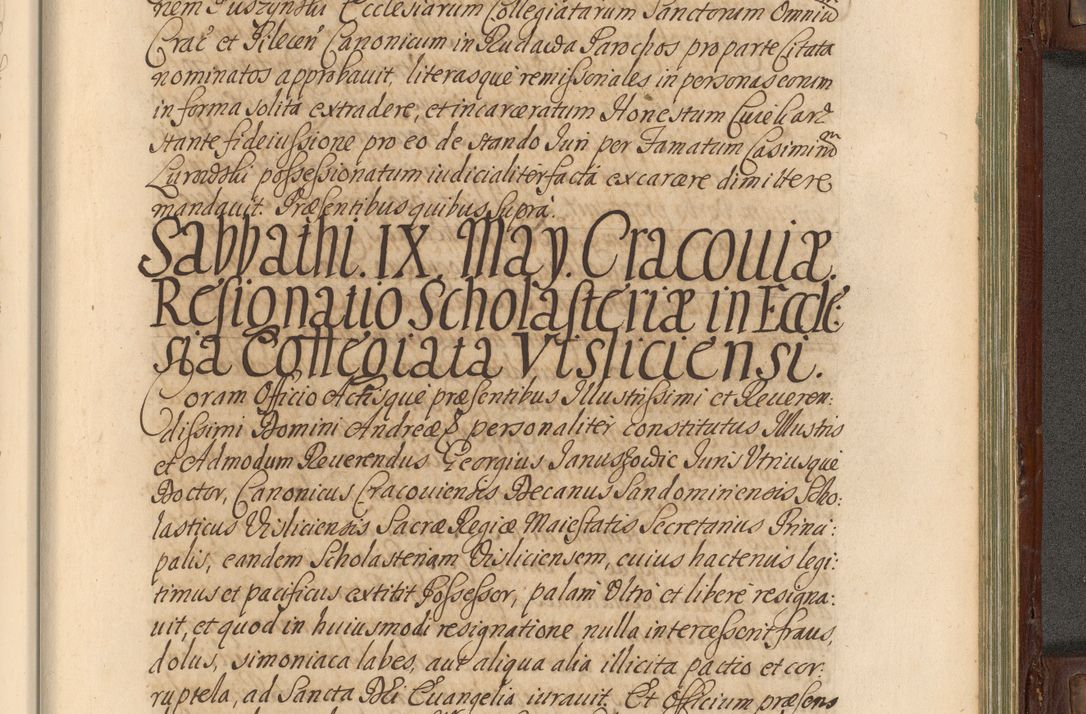 nem Puszynski Ecclesiarum Collegiatarum Sanctorum Omniū
Crac̃ et Pilecen̄ Canonicum in Rudawa Parochos pro parte Citata
nominatos approbauit literasque remissoriales in personas eorum
in forma solita extradere, et incarceratum Honestum
stante fideiussione pro eo de stando Iuri per Famatum Casimirū
possessionatum iudicialiter facta excarcere dimittere
mandauit. Præsentibus quibus supra.
Sabbathi. IX. May. Cracouiæ.
Resignatio Scholasteriæ in Eccle:
sia Collegiata Visliciensi.
Coram Officio Actisque præsentibus Illustrissimi et Reueren:
dissimi Domini Andreæ personaliter constitutus Illustris
et Admodum Reuerendus Georgius Ianuszowic Iuris Vtriusque
Doctor, Canonicus Cracouiensis Decanus Sandomiriensis Scho:
lasticus Visliciensis Sacræ Regiæ Maiestatis Secretarius Princi:
palis, eandem Scholasteriam Visliciensem, cuius hactenus legi:
timus et pacificus extitit Possessor, palam Vltro et libere resigna:
uit, et quod in huiusmodi resignatione nulla intercesserit fraus,
dolus, simoniaca labes, aut aliqua alia illicita pactio et cor:
ruptela, ad Sancta Dei Euangelia iurauit. Et Officium præsens